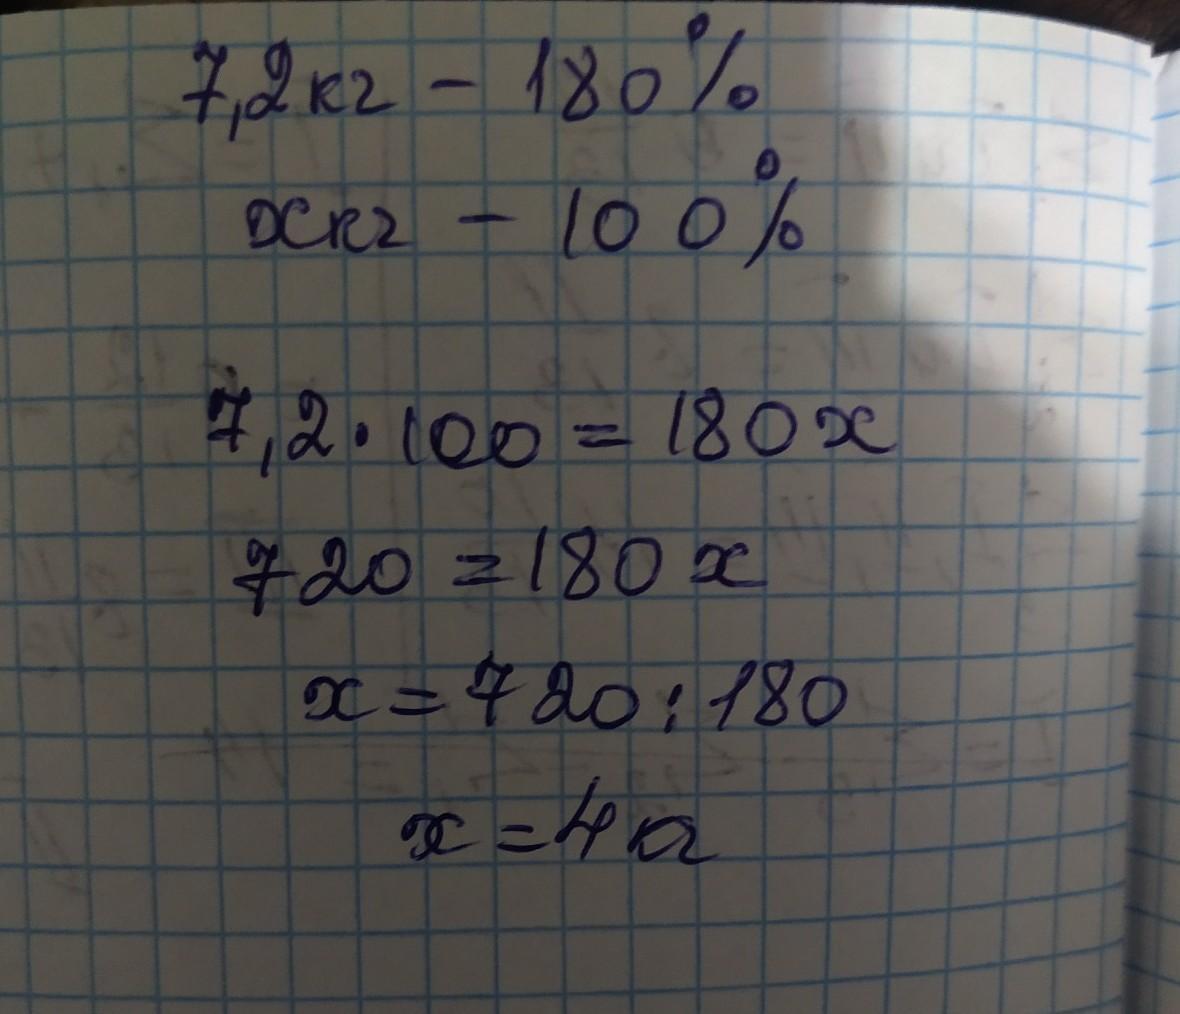 7,2 кг - 180%
x кг - 100%
7,2 · 100 = 180 x
720 = 180 x
x = 720 : 180
x = 4 кг